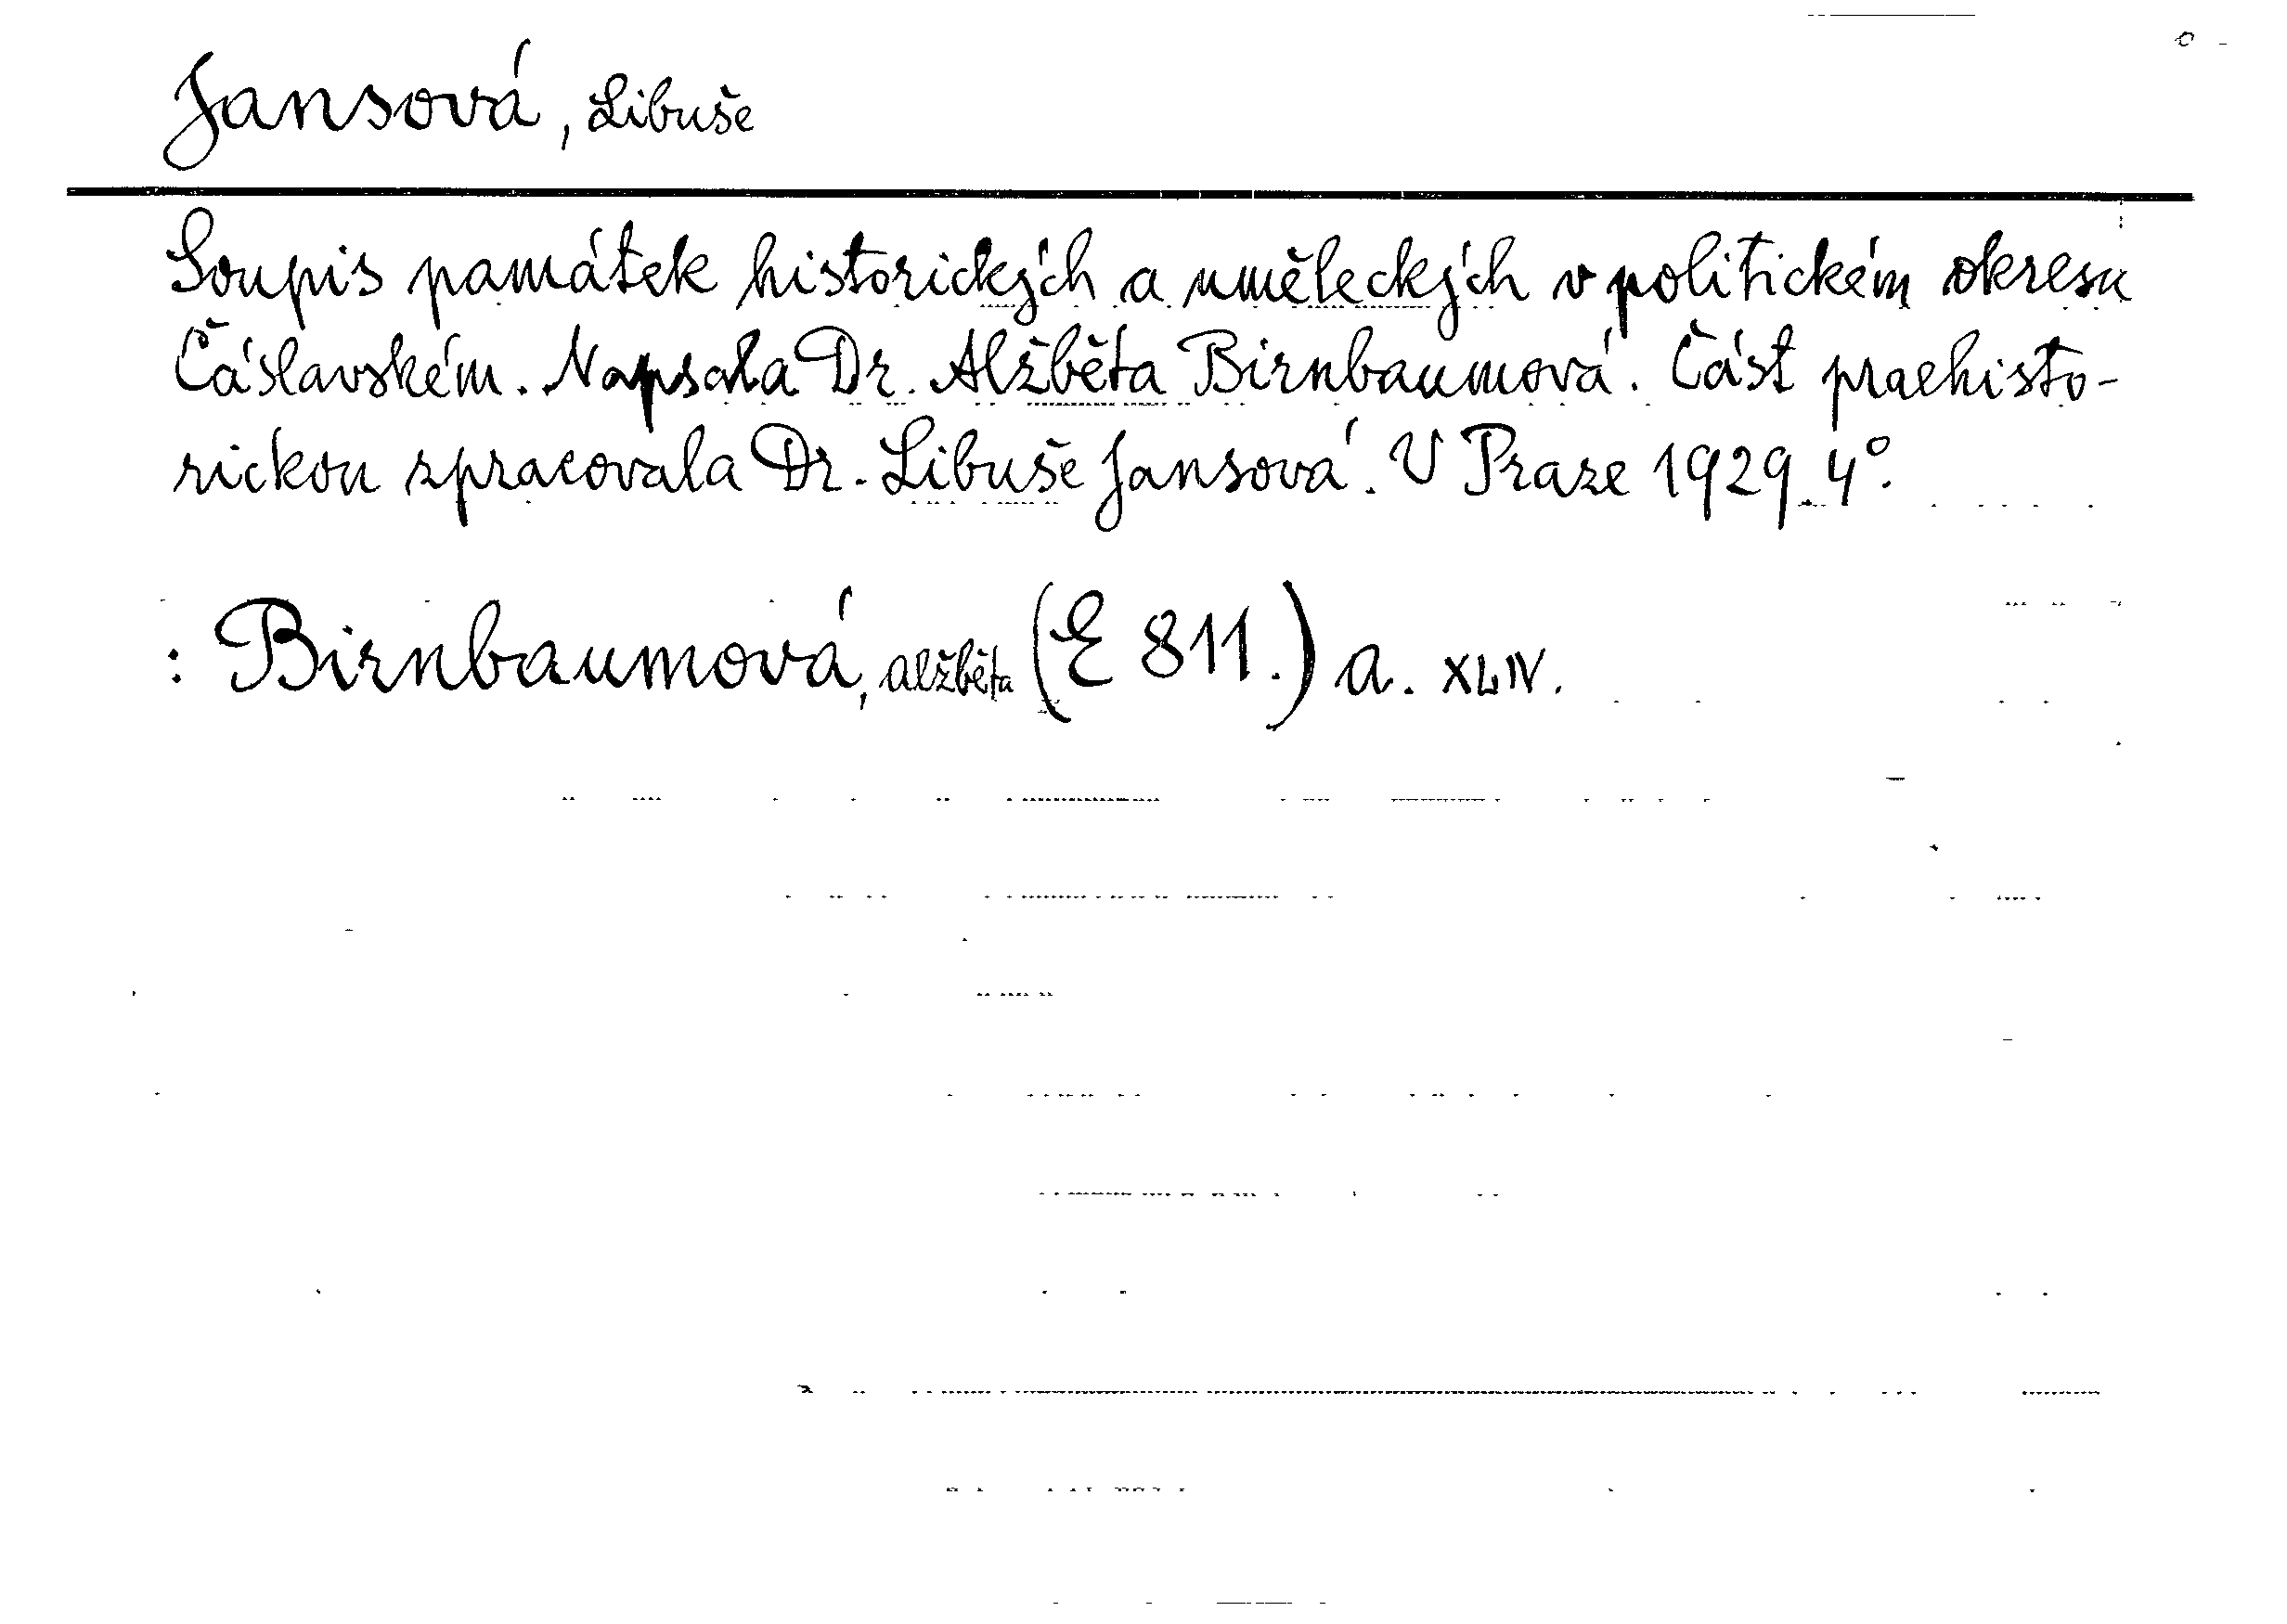 Jansová, Libuše
Soupis památek historických a uměleckých v politickém okresu
Čáslavském. Napsala Dr. Alžběta Birnbaumová. Část praehisto-
rickou zpracovala Dr. Libuše Jansová. V Praze 1929. 4°.
: Birnbaumová, Alžběta (E 811.) a. XLIV.